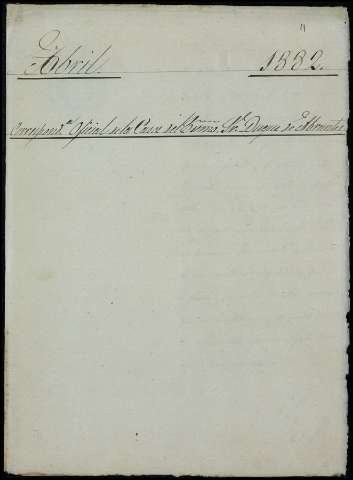 Abril. 1882.
Correspond.ª Oficial de la Casa del Excmo. Sr. Duque de Abrantes